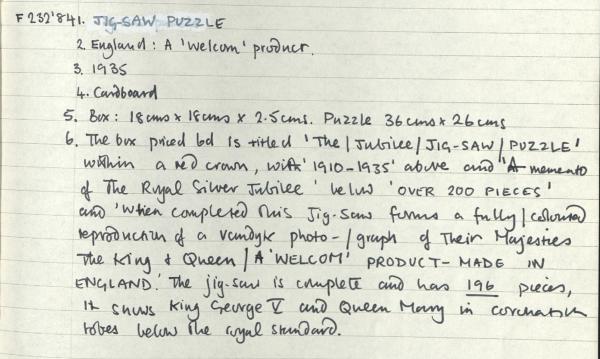 F232'841. JIG-SAW PUZZLE
2. England: A 'Welcom' product.
3. 1935
4. Cardboard
5. Box: 18cms x 18cms x 2.5cms. Puzzle 36cms x 26cms
6. The box priced 6d is titled 'The / Jubilee / JIG-SAW / PUZZLE'
within a red crown, with '1910-1935' above and 'A memento
of The Royal Silver Jubilee' below 'OVER 200 PIECES'
and 'When completed this Jig-Saw forms a fully / coloured
reproduction of a vandyk photo- / graph of Their Majesties
The King & Queen / A 'WELCOM' PRODUCT - MADE IN
ENGLAND.' The jig-saw is complete and has 196 pieces,
It shows King George V and Queen Mary in coronation
robes below the royal standard.